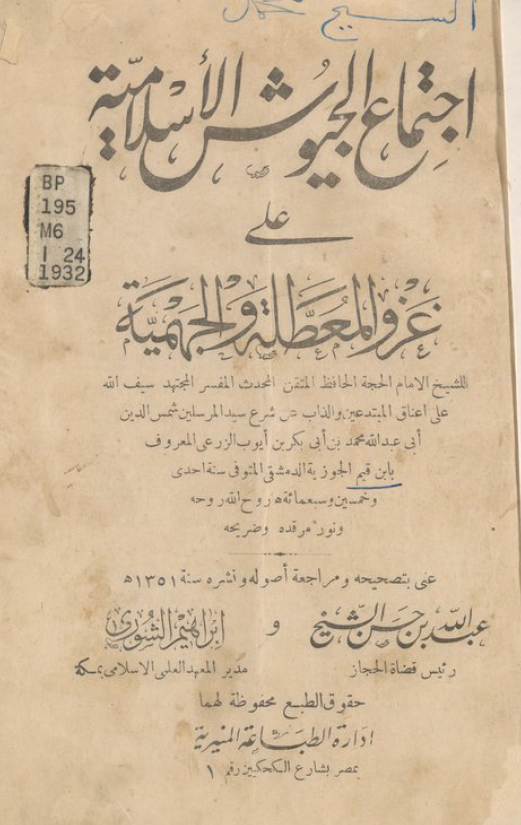 الشيخ
اجتماع الجيوش الأسلامية
على
غزو المعطلة والجهمية
BP
195
M6
I 24
1932
للشيخ الامام الحجة الحافظ المتقن المحدث المفسر المجتهد سيف الله
على اعناق المبتدعين والذاب عن شرع سيد المرسلين شمس الدين
أبى عبدالله محمد بن أبى بكر بن أيوب الزرعى المعروف
بابن قيم الجوزية الدمشقى المتوفى سنة احدى
وخمسين وسبعمائة ه روح الله روحه
ونور مرقده وضريحه
عنى بتصحيحه ومراجعة أصوله ونشره سنة ١٣٥١ه
عبدالله بن حسن الشيخ و ابراهيم الشورى
رئيس قضاة الحجاز مدير المعهد العلمى الاسلامى بمكة
حقوق الطبع محفوظة لهما
ادارة الطباعة المنيرية
بمصر بشارع الكحكيين رقم ١